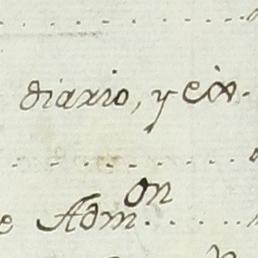 diario, y ex.
e Adm.on